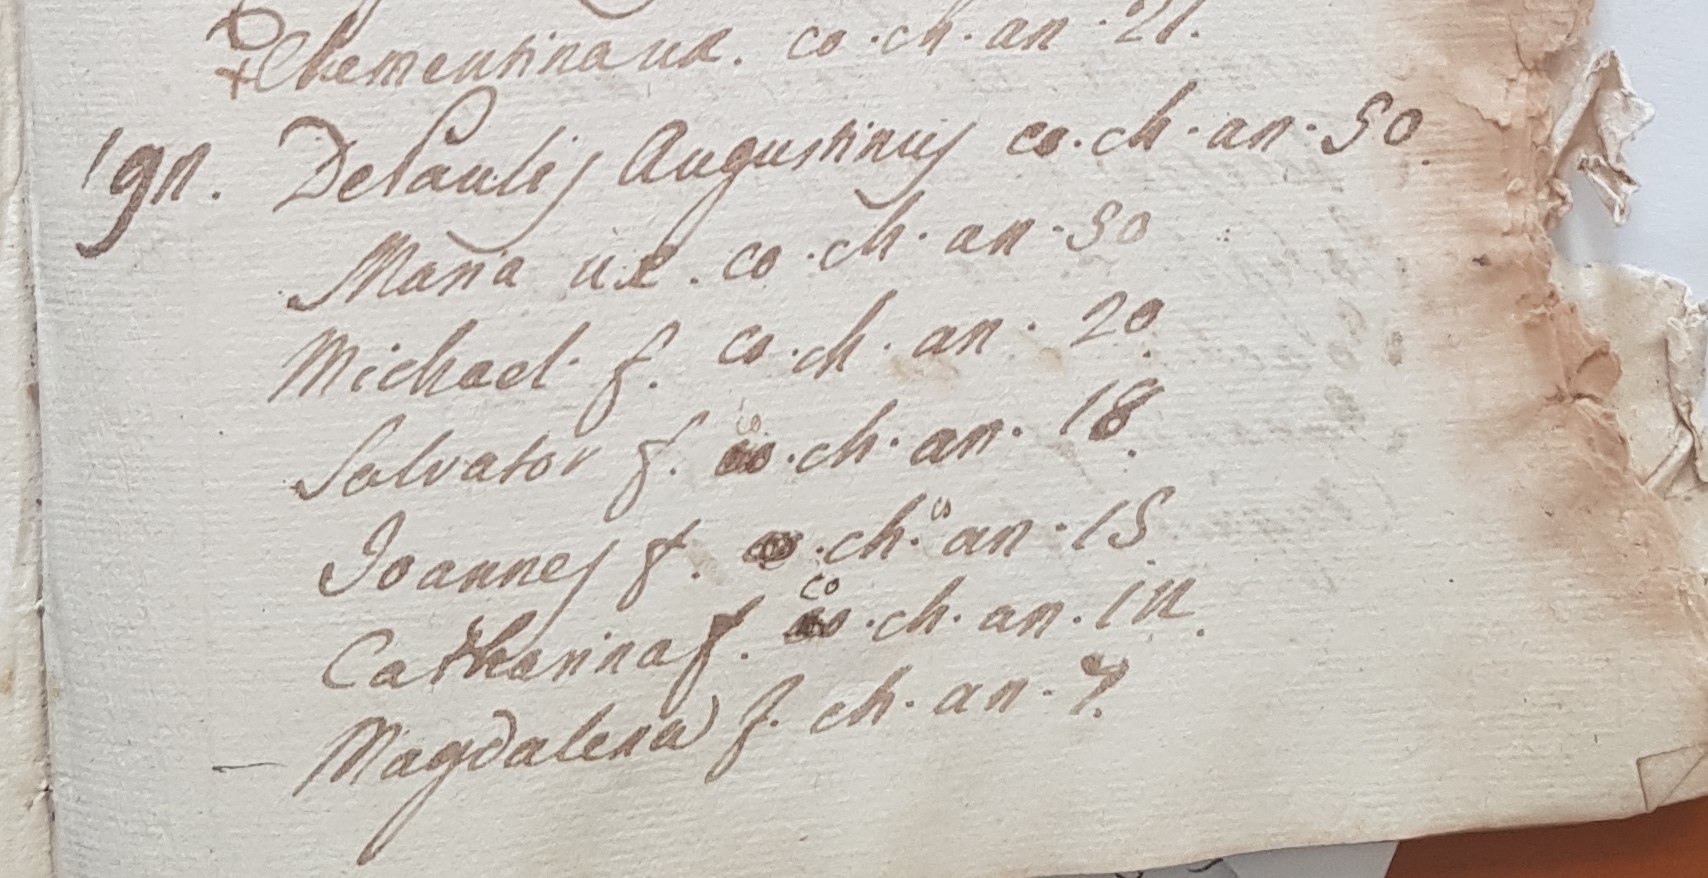 Clementina ux. co. ch. an. 21.
194. DePaulis Augustinus co. ch. an. 50.
Maria ux. co. ch. an. 50
Michael f. co. ch. an. 20.
Salvator f. co. ch. an. 18.
Joannes f. co. ch. an. 15.
Catharina f. co. ch. an. 14.
Magdalena f. ch. an. 7.